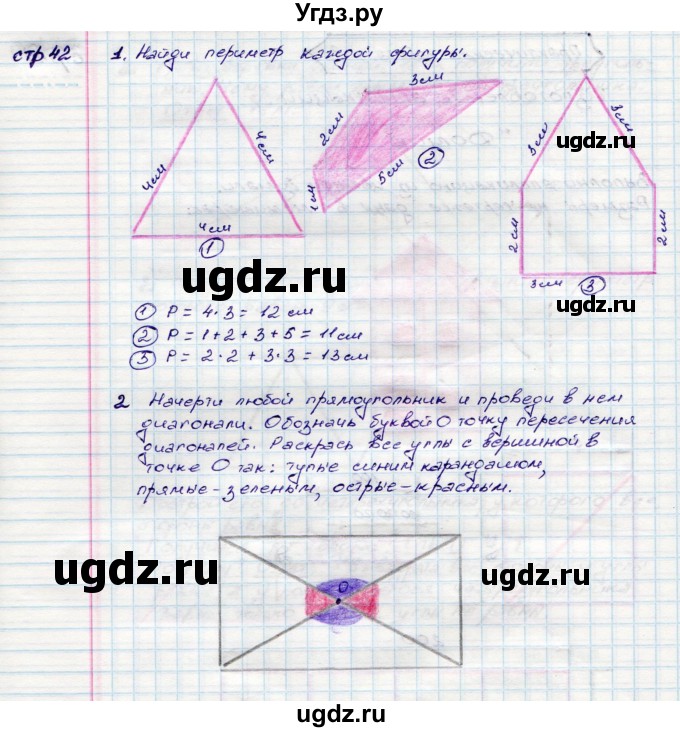 Угдз.ру
стр 42
1. Найди периметр каждой фигуры.
4см
4см
4см
1
2см
3см
1см
5см
2
3см
3см
2см
2см
3см
3
ugdz.ru
ugdz.ru
1 P = 4·3 = 12 см
2 P = 1+2+3+5 = 11см
3 P = 2·2 + 3·3 = 13см
2 Начерти любой прямоугольник и проведи в нем
диагонали. Обозначь буквой О точку пересечения
диагоналей. Раскрась все углы с вершиной в
точке О так: тупые синим карандашом,
прямые-зеленым, острые-красным.
ugdz.ru
ugdz.ru
ugdz.ru
О
ugdz.ru